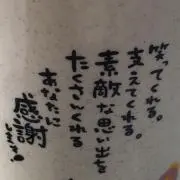 笑ってくれる。
支えてくれる。
素敵な思い出を
たくさんくれる
あなたに
感謝
します!